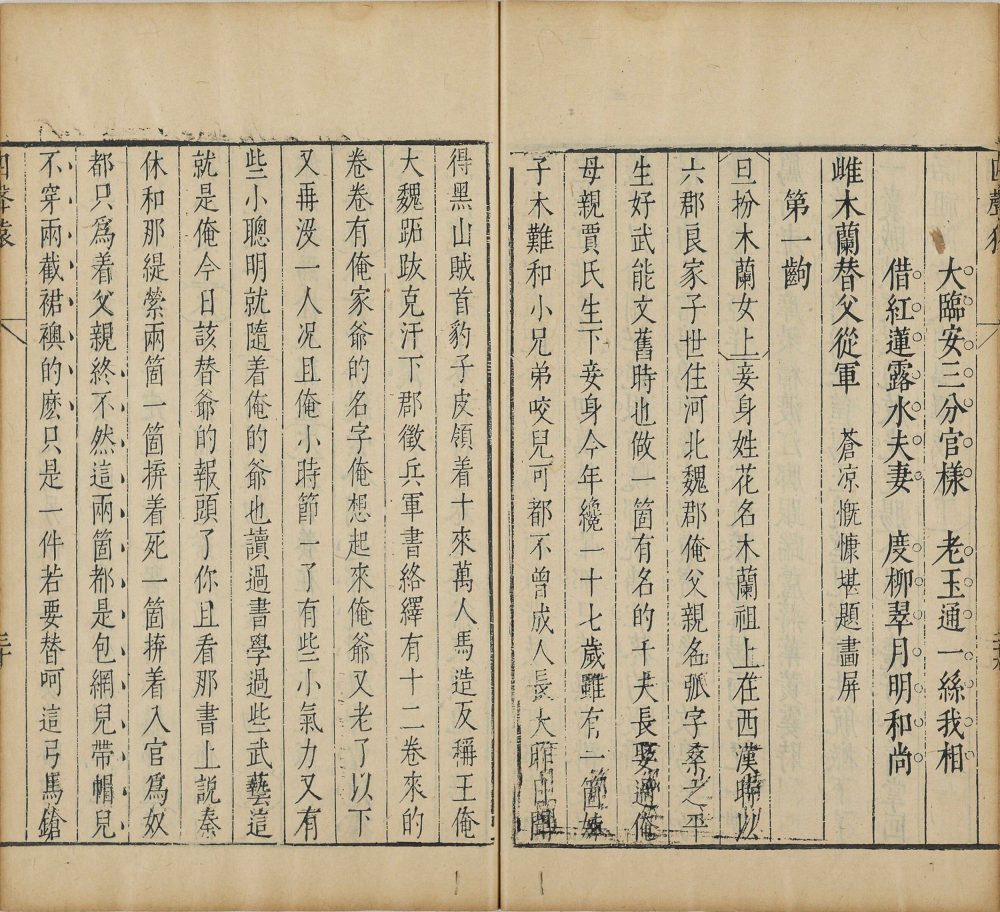 大臨安三分官樣　老玉通一絲我相
借紅蓮露水夫妻　度柳翠月明和尚
雌木蘭替父從軍　蒼凉慨慷堪題畵屏
第一齣
旦扮木蘭女上妾身姓花名木蘭祖上在西漢時以
六郡良家子世住河北魏郡俺父親名弧字桑之平
生好武能文舊時也做一箇有名的千夫長娶過俺
母親賈氏生下妾身今年纔一十七歲雖有一箇妹
子木難和小兄弟咬兒可都不曾成人長大昨日聞
得黑山賊首豹子皮領着十來萬人馬造反稱王俺
大魏跖跋克汗下郡徵兵軍書絡繹有十二卷來的
卷卷有俺家爺的名字俺想起來俺爺又老了以下
又再没一人况且俺小時節一了有些小氣力又有
些小聰明就隨着俺的爺也讀過書學過些武藝這
就是俺今日該替爺的報頭了你且看那書上說秦
休和那緹縈兩箇一箇拚着死一箇拚着入官爲奴
都只爲着父親終不然這兩箇都是包網兒帶帽兒
不穿兩截裙襖的麽只是一件若要替呵這弓馬鎗